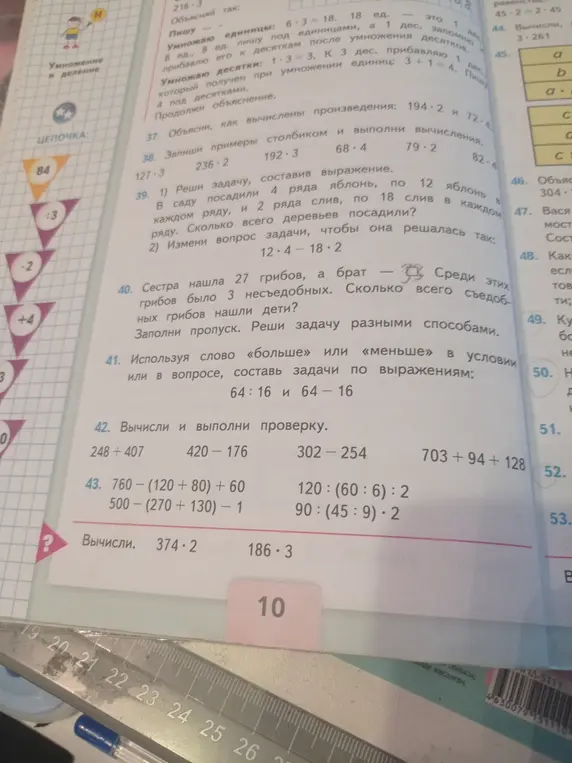 218·3
Объясняй так:
Пишу — —
Умножаю единицы: 6·3=18. 18 ед. — это 1
8 ед. 8 ед. пишу под единицами, а 1 дес.
прибавлю его к десяткам после умножения десятков.
Умножаю десятки: 1·3=3. К 3 дес. прибавляю 1 дес.,
который получен при умножении единиц: 3+1=4. Пишу
4 под десятками.
Продолжи объяснение.
37. Объясни, как вычислены произведения: 194·2 и 72·4
38. Запиши примеры столбиком и выполни вычисления.
127·3 236·2 192·3 68·4 79·2 82·4
39. 1) Реши задачу, составив выражение.
В саду посадили 4 ряда яблонь, по 12 яблонь в
каждом ряду, и 2 ряда слив, по 18 слив в каждом
ряду. Сколько всего деревьев посадили?
2) Измени вопрос задачи, чтобы она решалась так:
12·4−18·2
40. Сестра нашла 27 грибов, а брат — Среди этих
грибов было 3 несъедобных. Сколько всего съедоб-
ных грибов нашли дети?
Заполни пропуск. Реши задачу разными способами.
41. Используя слово «больше» или «меньше» в условии
или в вопросе, составь задачи по выражениям:
64:16 и 64−16
42. Вычисли и выполни проверку.
248+407 420−176 302−254 703+94+128
43. 760−(120+80)+60 120:(60:6):2
500−(270+130)−1 90:(45:9)·2
? Вычисли. 374·2 186·3
10
Умножение
и деление
ЦЕПОЧКА:
84
:3
-2
+4
3
0
45·2=2·45
44. Вычисли,
3·261
45.
a
b
a·
c
c:
46. Объяс
304·
47. Вася
мост
Сост
48. Как
есл
тов
ти;
49. Ку
бо
не
50. Н
51.
52.
53.
В
19 20 21 22 23 24 25 26